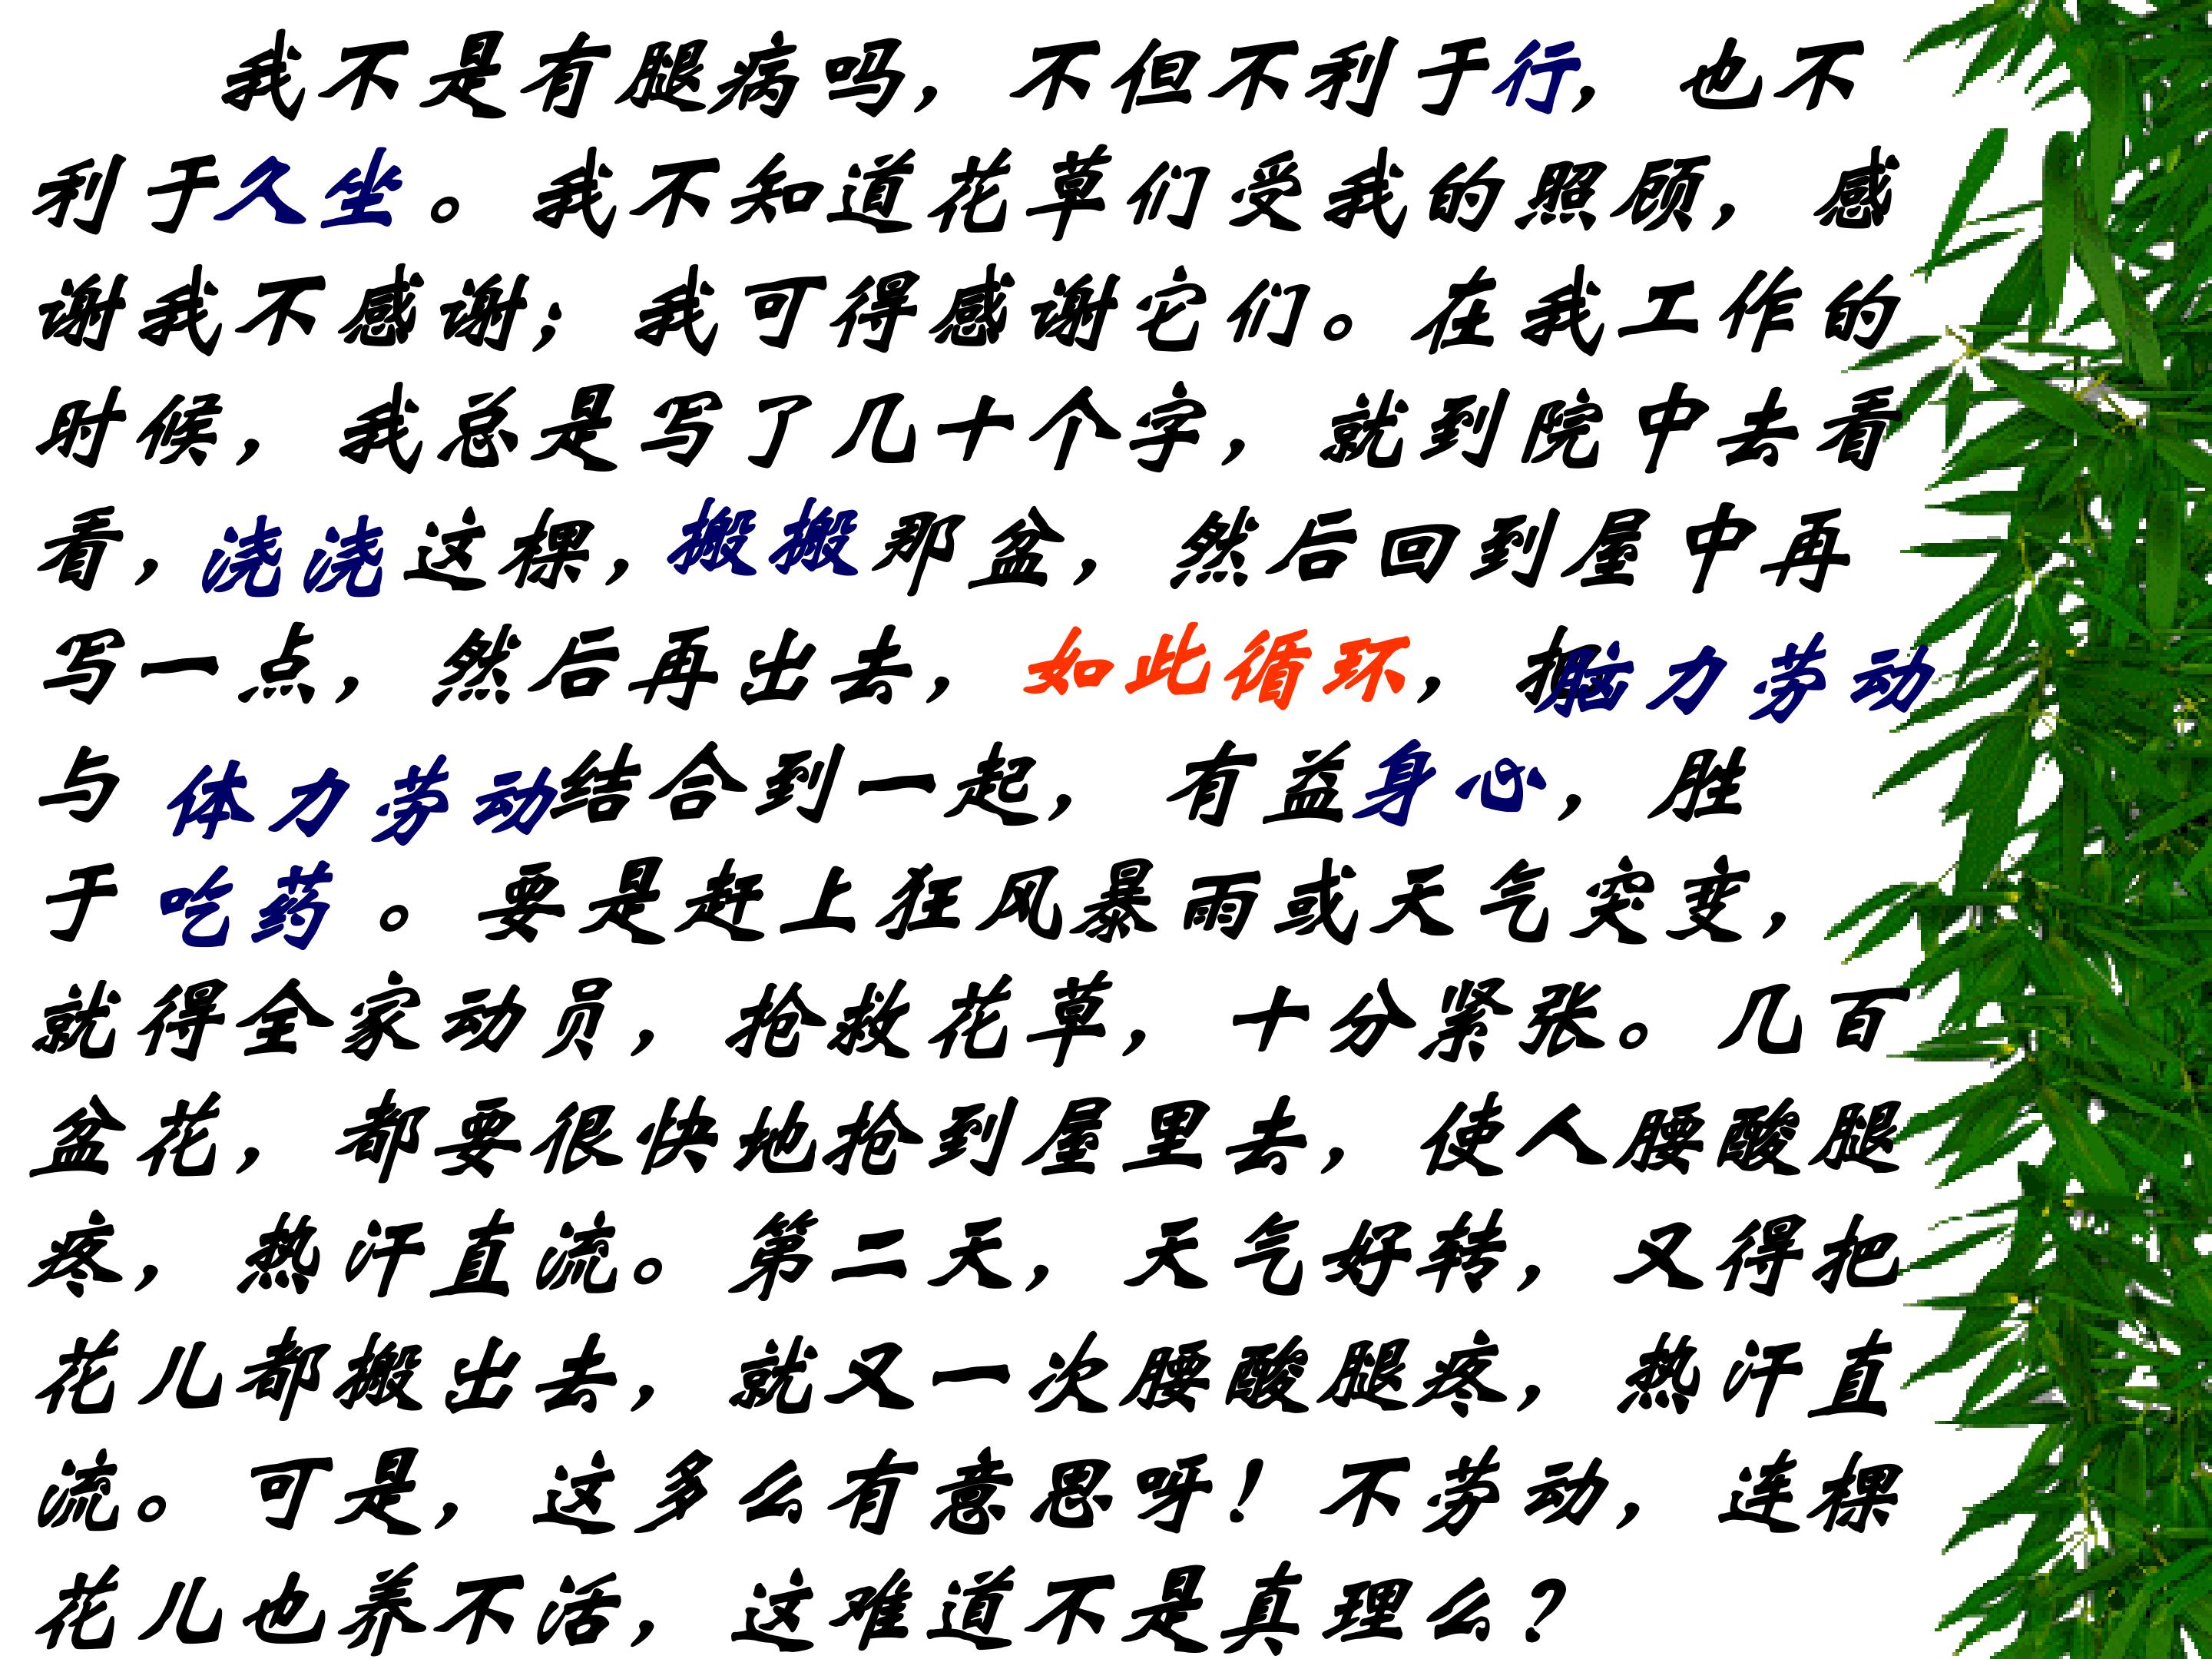 我不是有腿病吗，不但不利于行，也不
利于久坐。我不知道花草们受我的照顾，感
谢我不感谢；我可得感谢它们。在我工作的
时候，我总是写了几十个字，就到院中去看
看，浇浇这棵，搬搬那盆，然后回到屋中再
写一点，然后再出去，如此循环，把脑力劳动
与体力劳动结合到一起，有益身心，胜
于吃药。要是赶上狂风暴雨或天气突变，
就得全家动员，抢救花草，十分紧张。几百
盆花，都要很快地抢到屋里去，使人腰酸腿
疼，热汗直流。第二天，天气好转，又得把
花儿都搬出去，就又一次腰酸腿疼，热汗直
流。可是，这多么有意思呀！不劳动，连棵
花儿也养不活，这难道不是真理么？